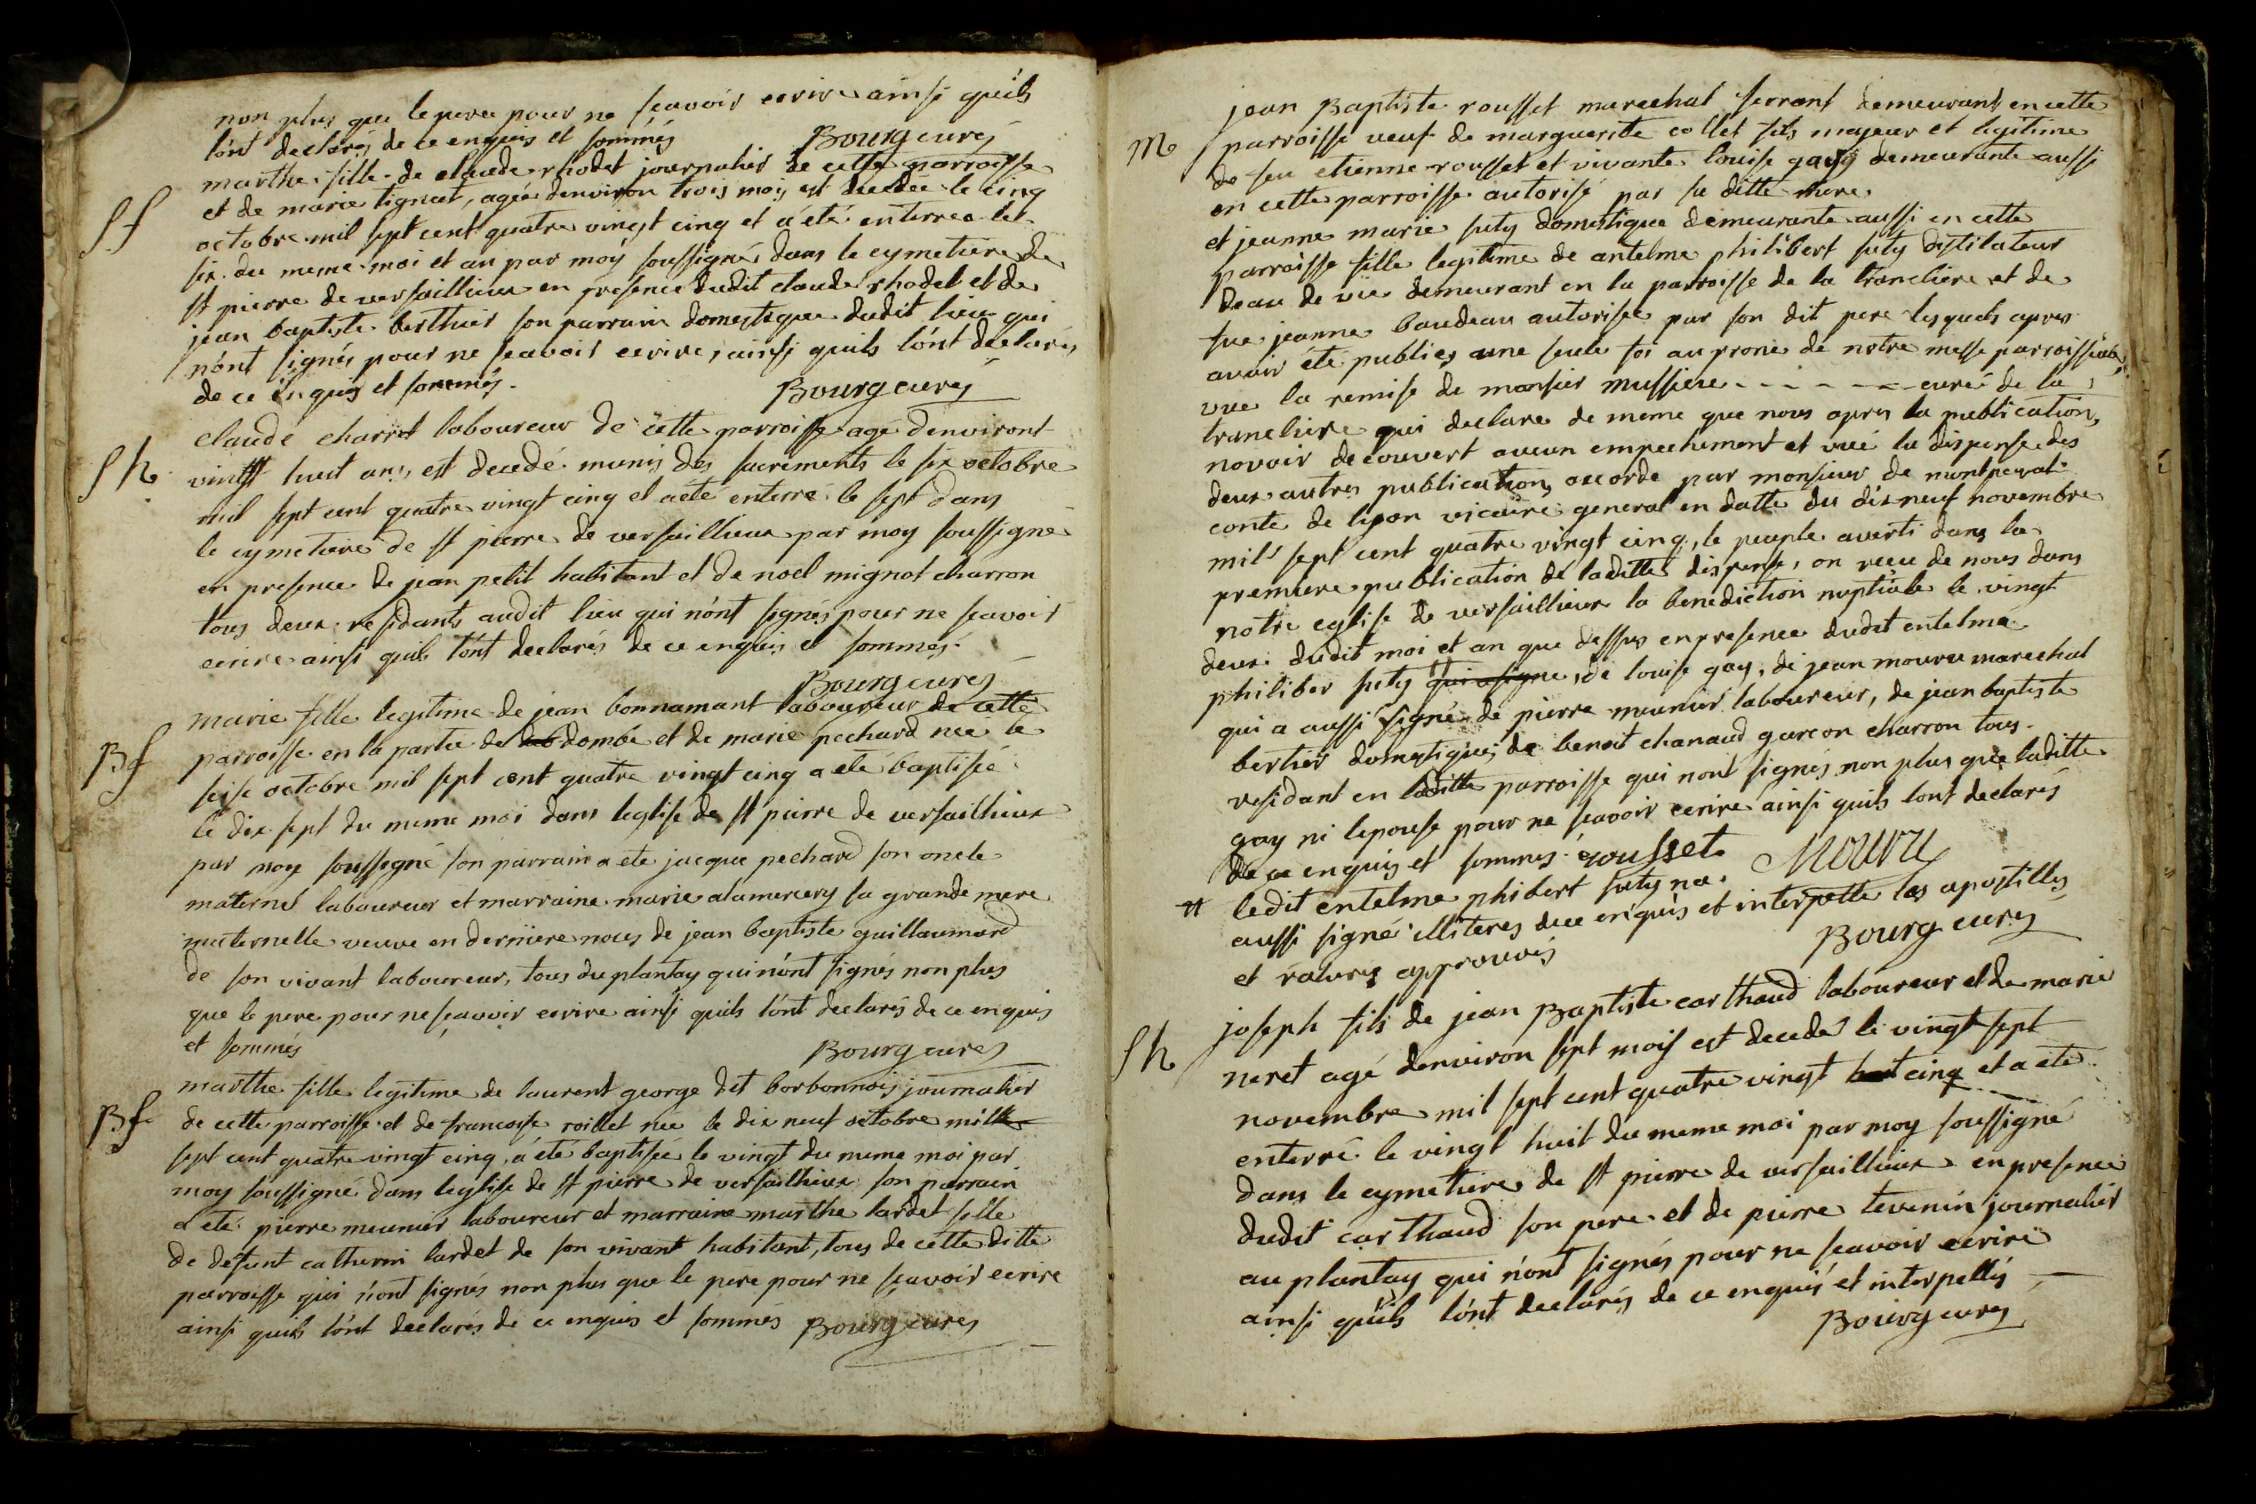 non plus que le pere pour ne sçavoir ecrire ainsi quils
lont declarés de ce enquis et sommés Bourg curés
Sf
marthe fille de claude rhodet journalier de cette parroisse
et de marie tignat, agée denviron trois mois est decedée le cinq
octobre mil sept cent quatre vingt cinq et a eté enterrée le
six du meme moi et an par moÿ soussigné dans le cymetiere de
st pierre de versaillieux en presence dudit claude rhodet et de
jean baptiste berthier son parrain domestique dudit lieu qui
n'ont signés pour ne sçavoir ecrire, ainsi quils l'ont declarés
de ce enquis et sommés. Bourg curés
Sh
claude charret laboureur de cette parroisse agé denviront
vingt huit ans, est decedé munis des sacrements le six octobre
mil sept cent quatre vingt cinq et a été enterré le sept dans
le cymetiere de st pierre de versaillieux par moy soussigné
en presence de jean petit habitant et de noel mignot charron
tous deux residants audit lieu qui n'ont signés pour ne sçavoir
ecrire ainsi quils l'ont declarés de ce enquis et sommés.
Bourg curés
Bf
marie fille legitime de jean bonnamant laboureur de cette
parroisse en la partie de dombe et de marie pechard née le
seise octobre mil sept cent quatre vingt cinq a eté baptisée
le dix sept du meme moi dans leglise de st pierre de versaillieux
par moy soussigné son parrain a ete jacque pechard son oncle
maternel laboureur et marraine marie alamercery sa grande mere
maternelle veuve en derniere noces de jean baptiste guillaumard
de son vivant laboureur, tous du plantay qui n'ont signés non plus
que le pere pour ne sçavoir ecrire ainsi quils l'ont declarés de ce enquis
et sommés Bourg curés
Bf
marthe fille legitime de laurent george dit borbonnois journalier
de cette parroisse et de francoise roillet née le dix neuf octobre mille
sept cent quatre vingt cinq, a été baptisée le vingt du meme moi par
moy soussigné dans leglise de st pierre de versaillieux son parrain
a ete pierre meunier laboureur et marraine marthe lardet fille
de defunt catherin lardet de son vivant habitant, tous de cette ditte
parroisse qui n'ont signés non plus que le pere pour ne sçavoir ecrire
ainsi quils l'ont declarés de ce enquis et sommés Bourg curés
M
jean Baptiste rousset marechal ferrant demeurant en cette
parroisse veuf de marguerite collet fils majeur et legitime
de feu etienne rousset et vivante louise gay demeurante aussi
en cette parroisse autorisé par sa ditte mere
et jeanne marie suty domestique demeurante aussi en cette
parroisse fille legitime de antelme philibert suty distilateur
deau de vie demeurant en la parroisse de la tranclière et de
fue jeanne baudeau autorisée par son dit pere lesquels apres
avoir été publies une seule foi au prone de notre messe parroissiale,
vue la remise de monsier mussiere - - - - - - curé de la
tranclière qui declare de meme que nous apres la publication,
n'avoir decouvert aucun empechement et vué la dispense des
deux autres publication, accordé par monsieur de montpeyrat
conte de lyon vicaire general en datte du dix neuf novembre
mil sept cent quatre vingt cinq, le peuple averti dans la
premiere publication de laditte dispense, on recu de nous dans
notre eglise de versaillieux la benediction nuptiale le vingt
deux dudit moi et an que dessus en presence dudit entelme
philiber suty qui a signé, de louise gay, de jean mouru marechal
qui a aussi signé de pierre meunier laboureur, de jean baptiste
bertier domestique, de benoit chanaud garcon charron tous
residant en laditte parroisse qui n'ont signés non plus que laditte
gay ni lepouse pour ne sçavoir ecrire ainsi quils l'ont declarés
de ce enquis et sommés. rousset Mouru
# ledit entelme phibert suty na
aussi signé illiteres due enquis et interpelle les apostilles
et ratures approuvés Bourg curés
Sh
joseph fils de jean Baptiste carthaud laboureur et de marie
neret agé denviron sept mois est decedé le vingt sept
novembre mil sept cent quatre vingt cinq et a eté
enterré le vingt huit du meme moi par moy soussigné
dans le cymetiere de st pierre de versaillieux en presence
dudit carthaud son pere et de pierre tevenin journalier
au plantay qui n'ont signés pour ne sçavoir ecrire
ainsi quils l'ont declarés de ce enquis et interpellés
Bourg curés